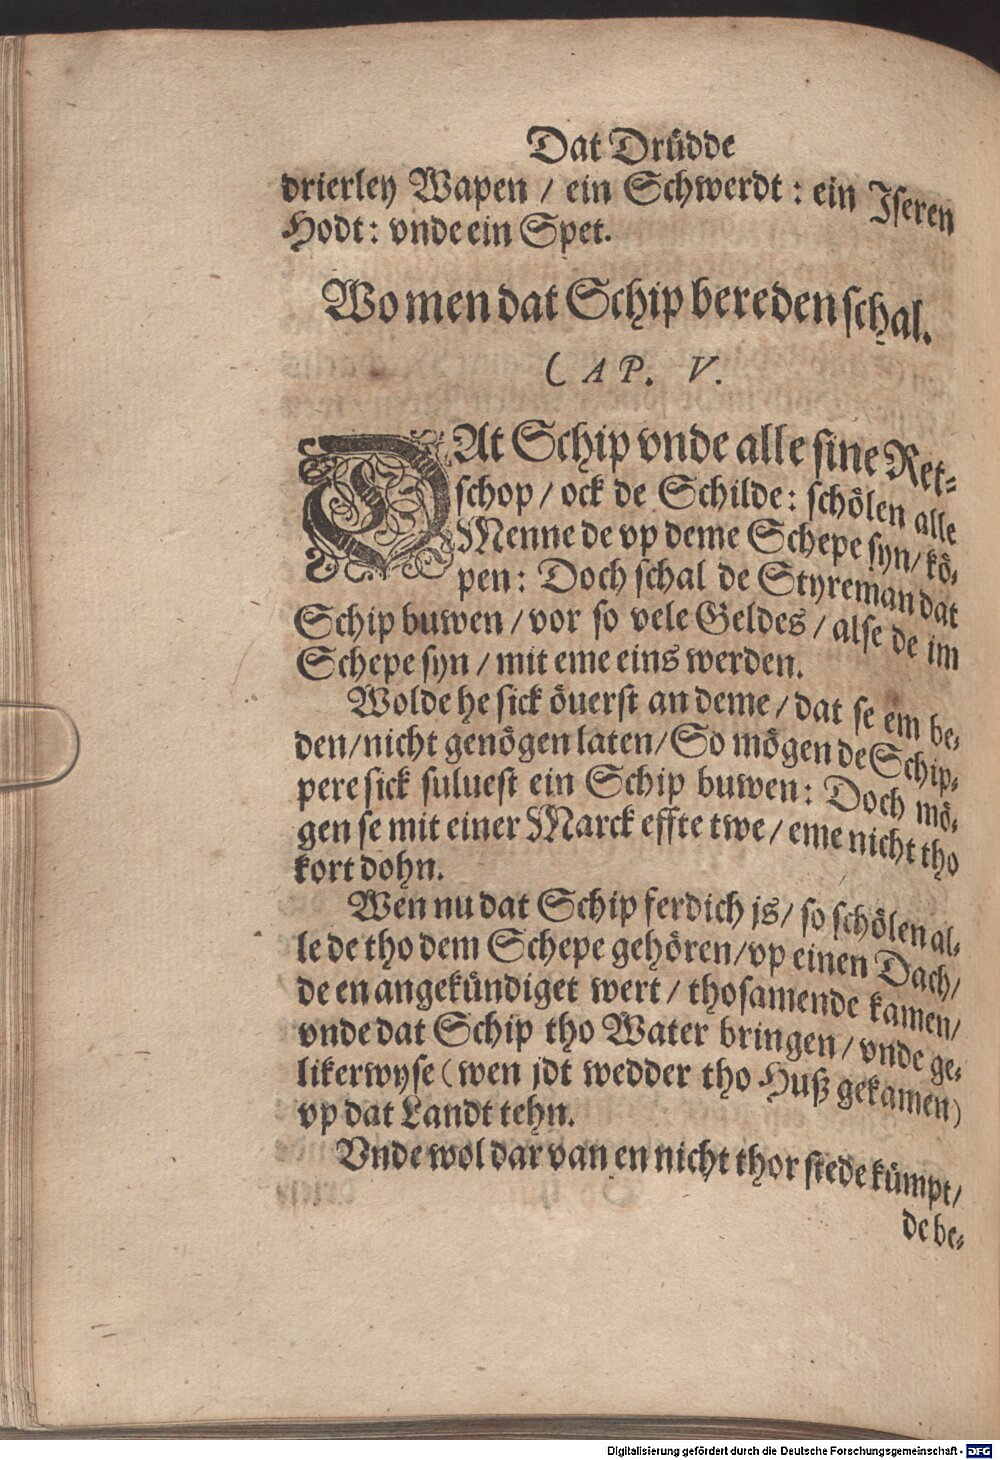 Dat Drüdde
drierley Wapen / ein Schwerdt : ein Iseren
Hodt : vnde ein Spet.
Wo men dat Schip bereden schal.
CAP. V.
DAt Schip vnde alle sine Ret-
schop / ock de Schilde : schölen alle
Menne de vp deme Schepe syn / kö-
pen : Doch schal de Styreman dat
Schip buwen / vor so vele Geldes / alse de im
Schepe syn / mit eme eins werden.
Wolde he sick öuerst an deme / dat se em be-
den / nicht genögen laten / So mögen de Schip-
pere sick suluest ein Schip buwen : Doch mö-
gen se mit einer Marck effte twe / eme nicht tho
kort dohn.
Wen nu dat Schip ferdich js / so schölen al-
le de tho dem Schepe gehören / vp einen Dach /
de en angekündiget wert / thosamende kamen /
vnde dat Schip tho Water bringen / vnde ge-
likerwyse (wen jdt wedder tho Huß gekamen)
vp dat Landt tehn.
Vnde wol dar van en nicht thor stede kümpt /
de be-
Digitalisierung gefördert durch die Deutsche Forschungsgemeinschaft - DFG